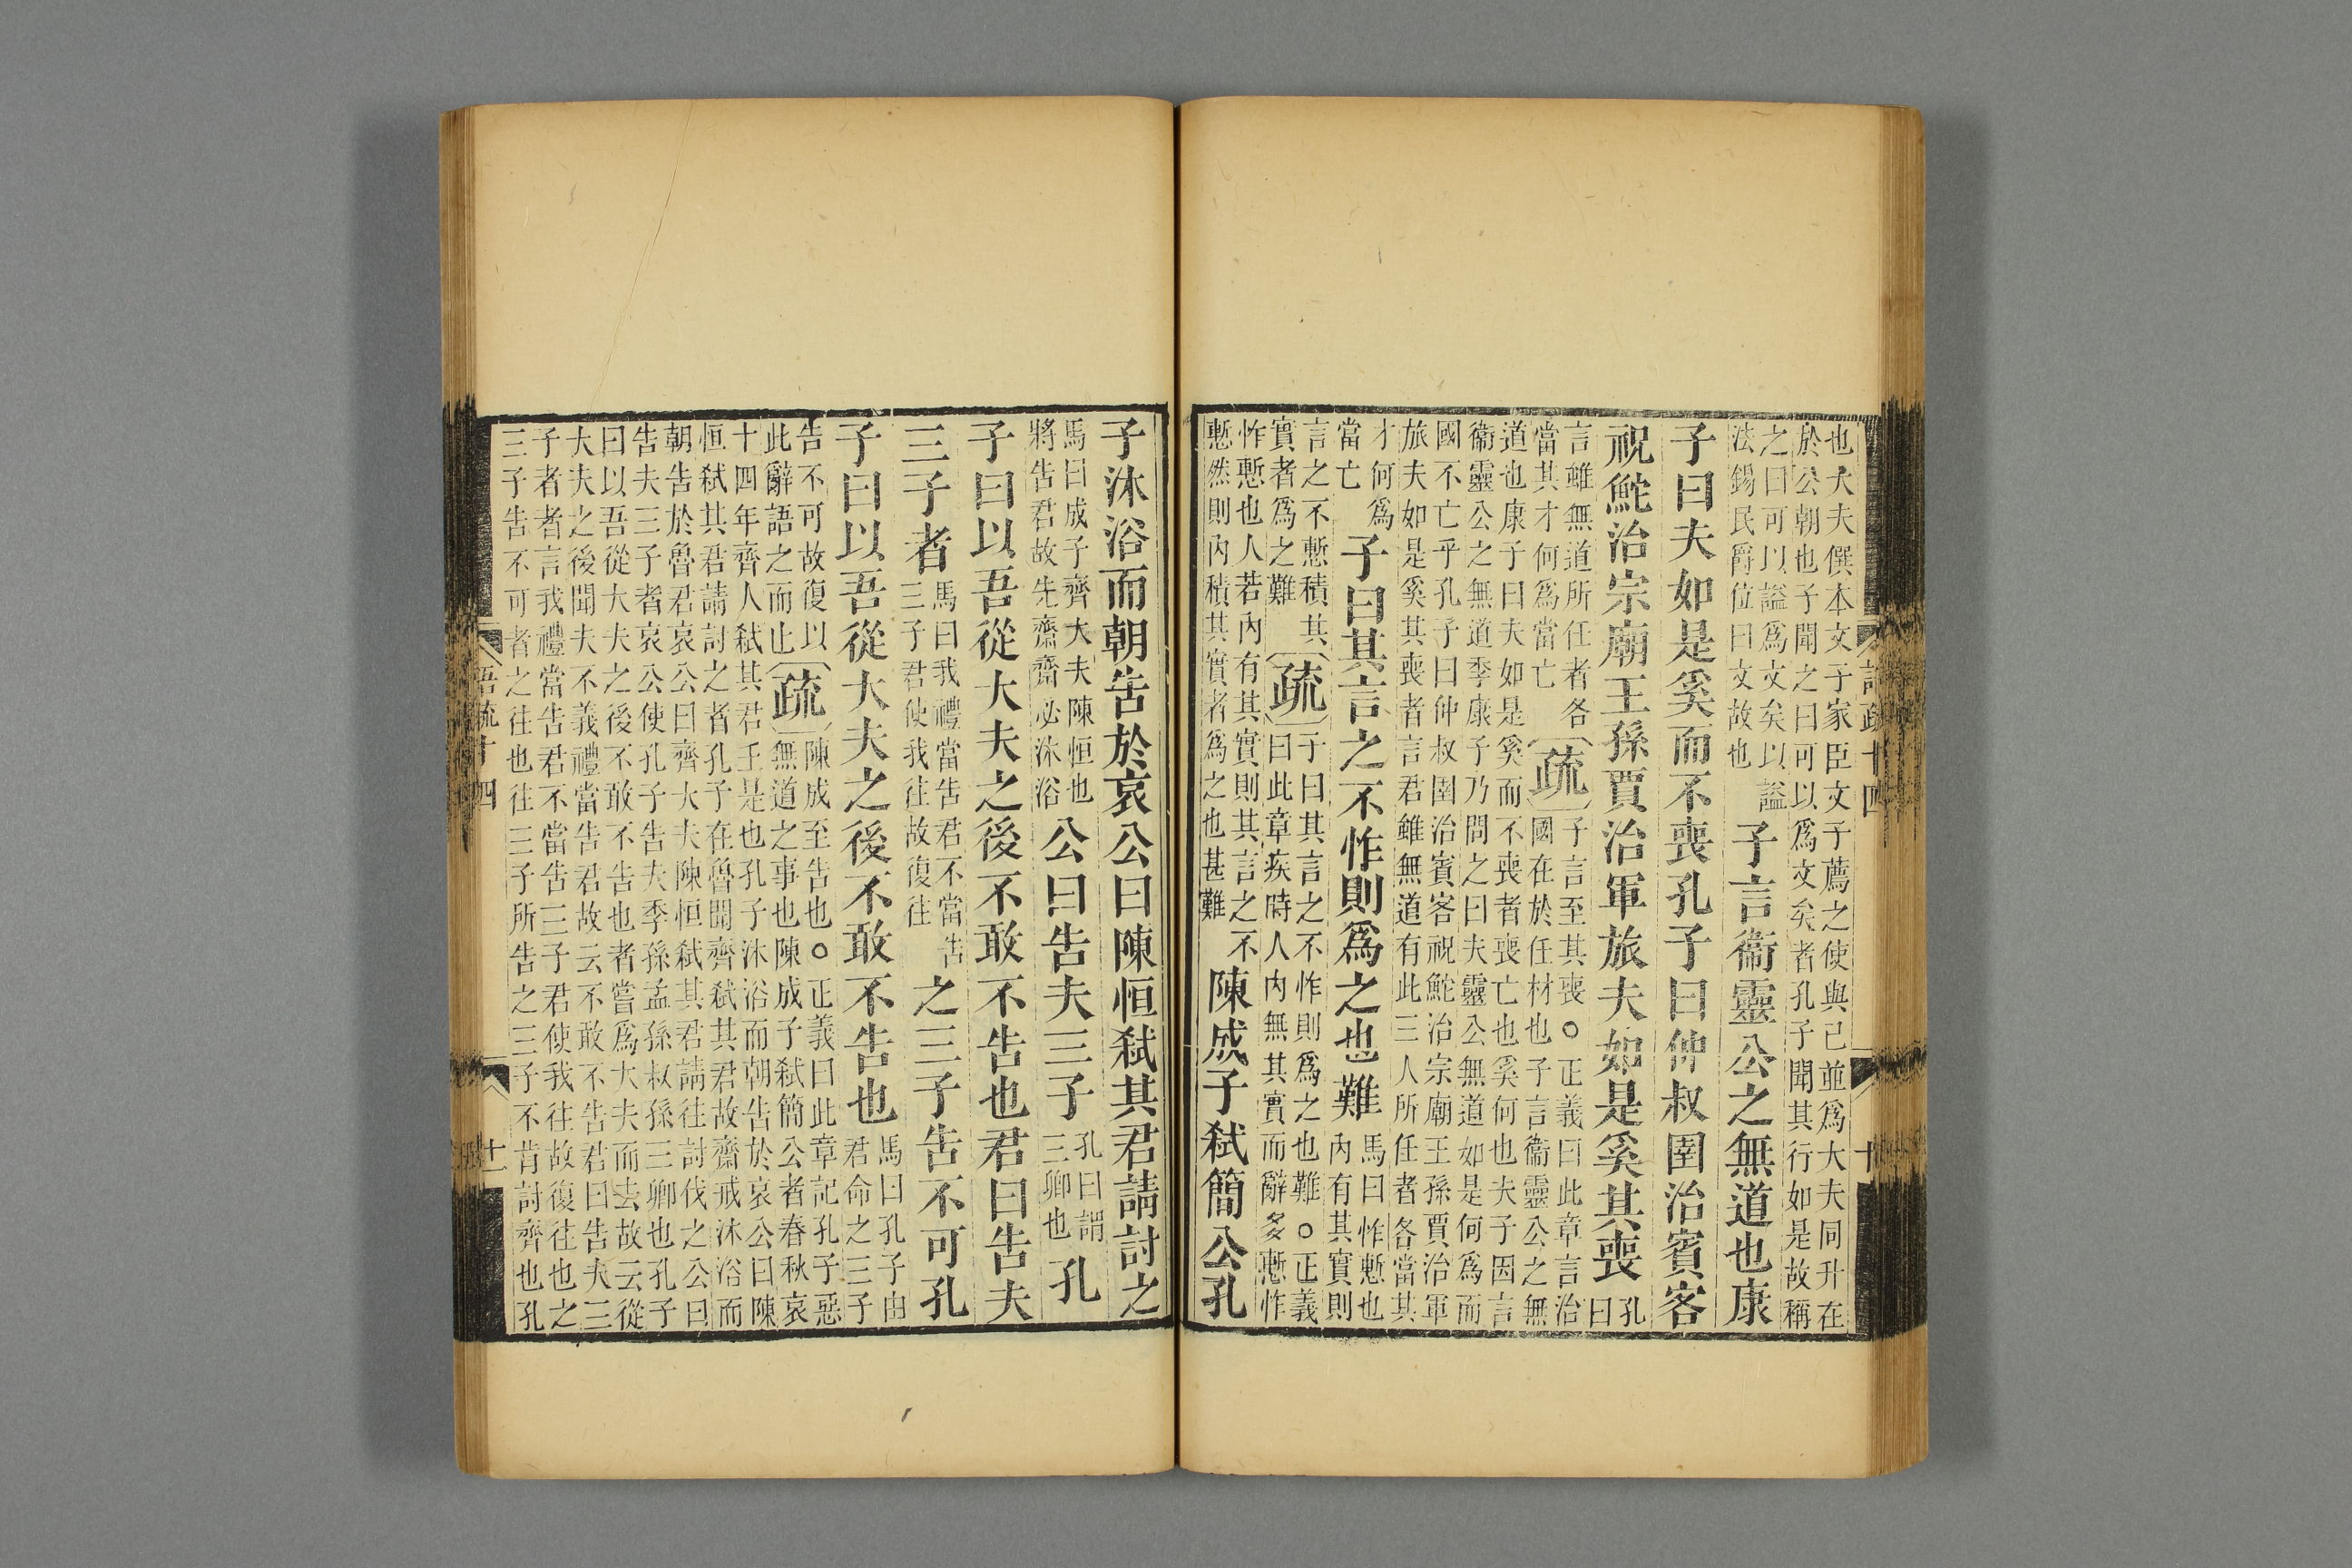 語疏十四 十
也大夫僎本文子家臣文子薦之使與己並爲大夫同升在
於公朝也子聞之曰可以爲文矣者孔子聞其行如是故稱
之曰可以諡爲文矣以諡
法錫民爵位曰文故也
子言衞靈公之無道也康
子曰夫如是奚而不喪孔子曰仲叔圉治賓客
祝鮀治宗廟王孫賈治軍旅夫如是奚其喪
孔
曰
言雖無道所任者各
當其才何爲當亡
疏
子言至其喪○正義曰此章言治
國在於任材也子言衞靈公之無
道也康子曰夫如是奚而不喪者喪亡也奚何也夫子因言
衞靈公之無道季康子乃問之曰夫靈公無道如是何爲而
國不亡乎孔子曰仲叔圉治賓客祝鮀治宗廟王孫賈治軍
旅夫如是奚其喪者言君雖無道有此三人所任者各當其
才何爲
當亡
子曰其言之不怍則爲之也難
馬曰怍慙也
內有其實則
言之不慙積其
實者爲之難
疏
子曰其言之不怍則爲之也難○正義
曰此章疾時人內無其實而辭多慙怍
怍慙也人若內有其實則其言之不
慙然則內積其實者爲之也甚難
陳成子弑簡公孔
子沐浴而朝告於哀公曰陳恒弑其君請討之
馬曰成子齊大夫陳恒也
將告君故先齋齋必沐浴
公曰告夫三子
孔曰謂
三卿也
孔
子曰以吾從大夫之後不敢不告也君曰告夫
三子者
馬曰我禮當告君不當告
三子君使我往故復往
之三子告不可孔
子曰以吾從大夫之後不敢不告也
馬曰孔子由
君命之三子
告不可故復以
此辭語之而止
疏
陳成至告也○正義曰此章記孔子惡
無道之事也陳成子弑簡公者春秋哀
十四年齊人弑其君壬是也孔子沐浴而朝告於哀公曰陳
恒弑其君請討之者孔子在魯聞齊弑其君故齋戒沐浴而
朝告於魯君哀公曰齊大夫陳恒弑其君請往討伐之公曰
告夫三子者哀公使孔子告夫季孫孟孫叔孫三卿也孔子
曰以吾從大夫之後不敢不告也者嘗爲大夫而去故云從
大夫之後聞夫不義禮當告君故云不敢不告君曰告夫三
子者者言我禮當告君不當告三子君使我往故復往也之
三子告不可者之往也往三子所告之三子不肯討齊也孔
語疏十四 十一